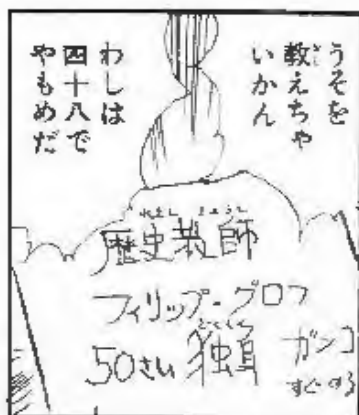 うそを
教えちゃ
いかん
わしは
四十八で
やもめだ
歴史教師
フィリップ・グロフ
50さい 独身 ガンコ